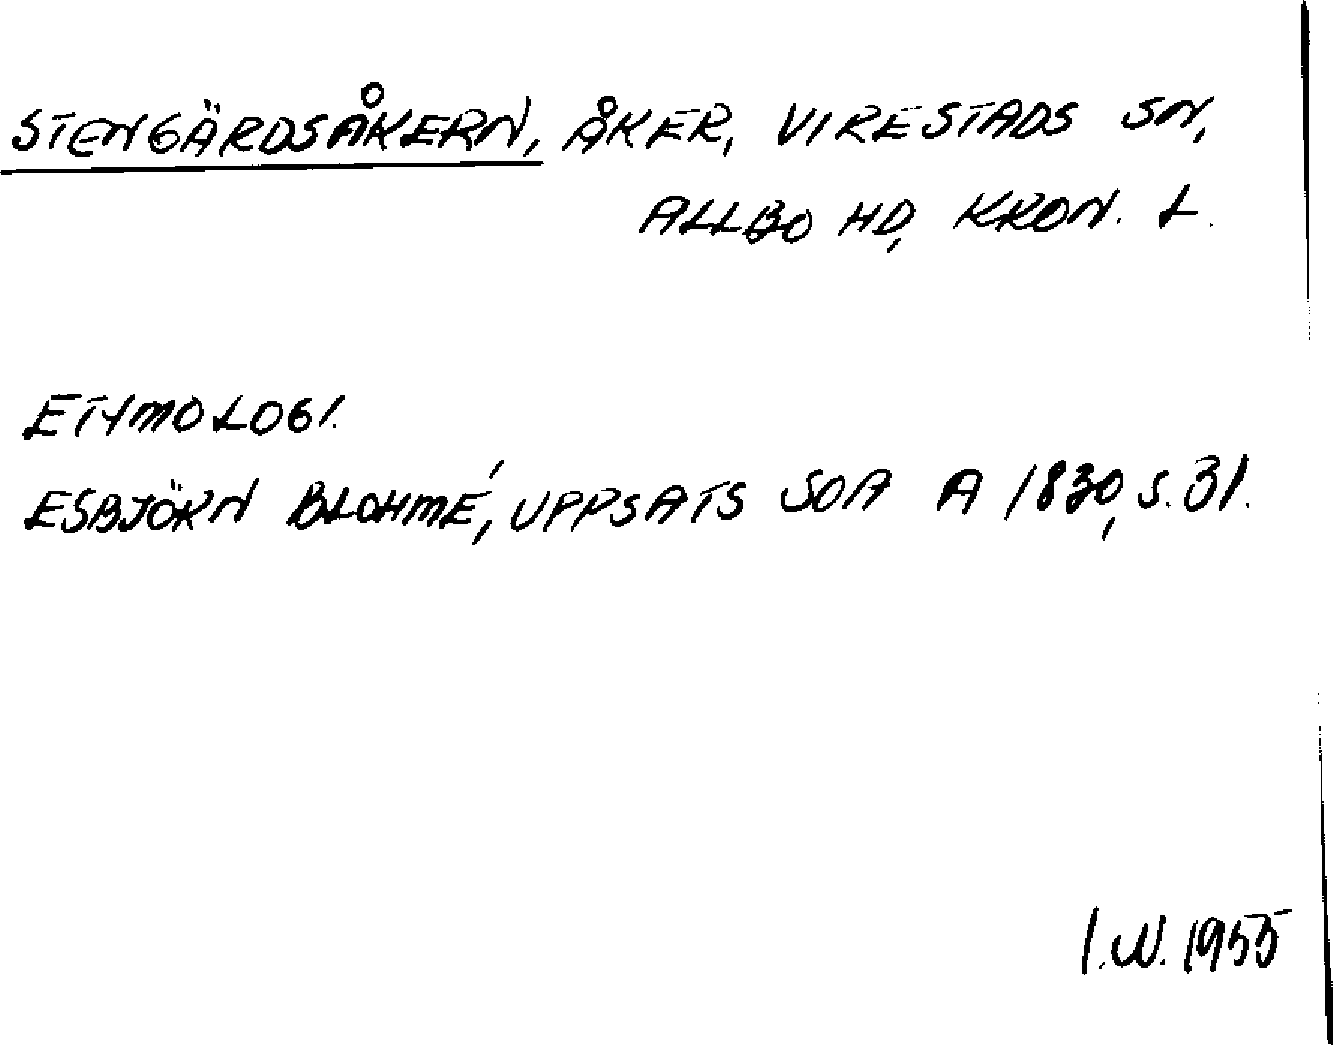 STENGÄRDSÅKERN, ÅKER, VIRESTADS SN,
ALLBO HD, KRON. L.
ETYMOLOGI.
ESBJÖRN BLOHMÉ, UPPSATS SOA A 1830, S. 31.
I.W. 1955